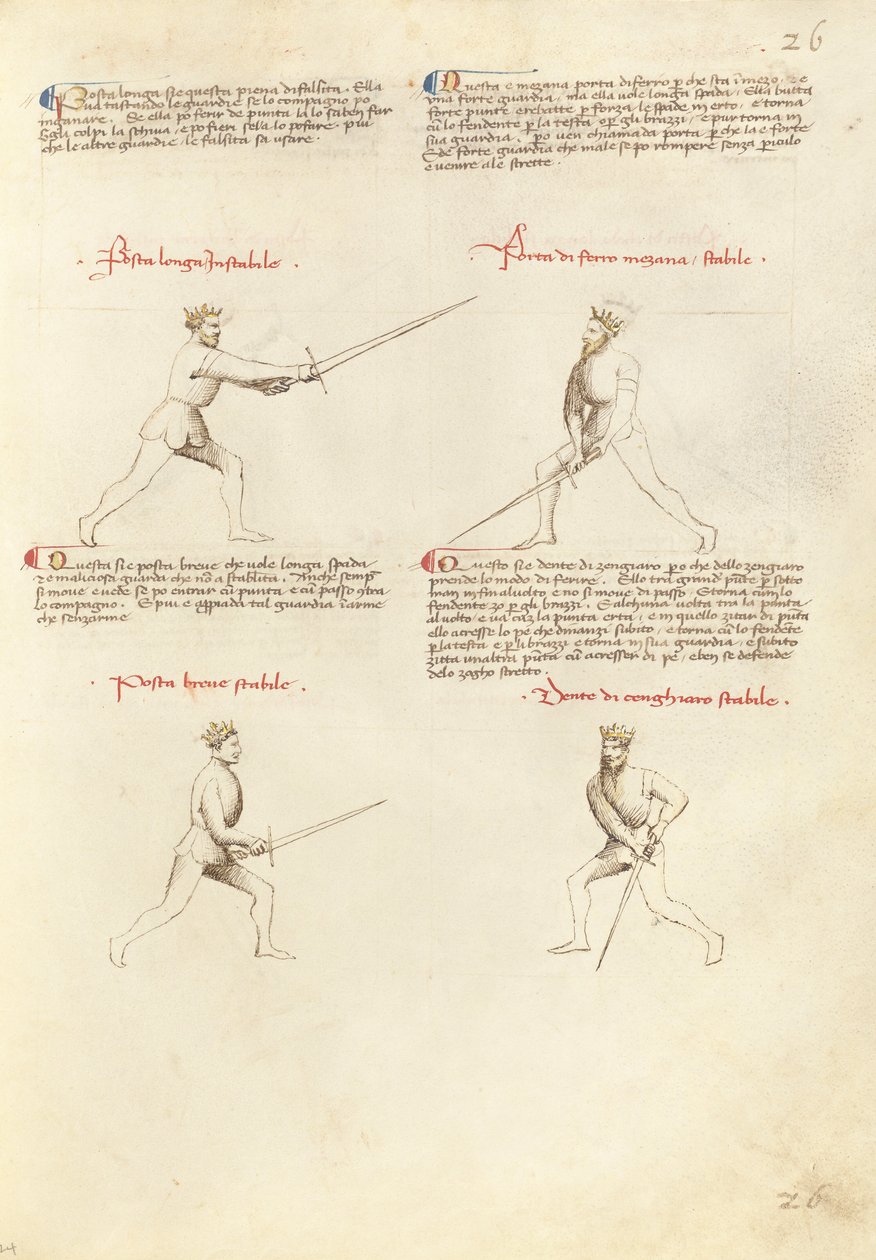 26
Posta longa sie questa piena di falsita. Ella
va tastando le guardie se lo compagno po
inganare. Se ella po ferir de punta la lo saben far
Egli colpi la schiva, e po fieri sela lo po fare. piu
che le altre guardie, le falsita sa usare.
Questa e mezana porta di ferro p che sta i mezo, e e
una forte guardia, ma ella vole longa spada, Ella butta
forte punte e rebatte p forza le spade in erto, e torna
cu lo fendente p la testa o p gli brazzi, e pur torna in
sua guardia. po ven chiamada porta p che la e forte
Ede forte guardia che male se po rompere senza piculo
e venire ale strette.
. Posta longa Instabile .
. Porta di ferro mezana, stabile .
Questa sie posta breve che vole longa spada
e maliciosa guarda che no a stabilita. Anche semp
si move e vede se po entrar cu punta e cu passo 9tra
lo compagno. E piu e appiada tal guardia i arme
che senz arme
Questo sie dente di zengiaro po che dello zengiaro
prende lo modo di ferire. Ello tra grand pute p sotto
man in fin al volto, e no si move di passo, E torna cum lo
fendente zo p gli brazzi. E alchuna volta tra la punta
al volto, e va cu la punta erta, e in quello zitar di puta
ello acresse lo pe che dinanzi subito, e torna cu lo fendete
p la testa e p li brazzi e torna in sua guardia, e subito
zitta un altra puta cu acresser di pe, e ben se defende
delo zogho stretto.
. Posta breve stabile .
. Dente di cenghiaro stabile .
26
24